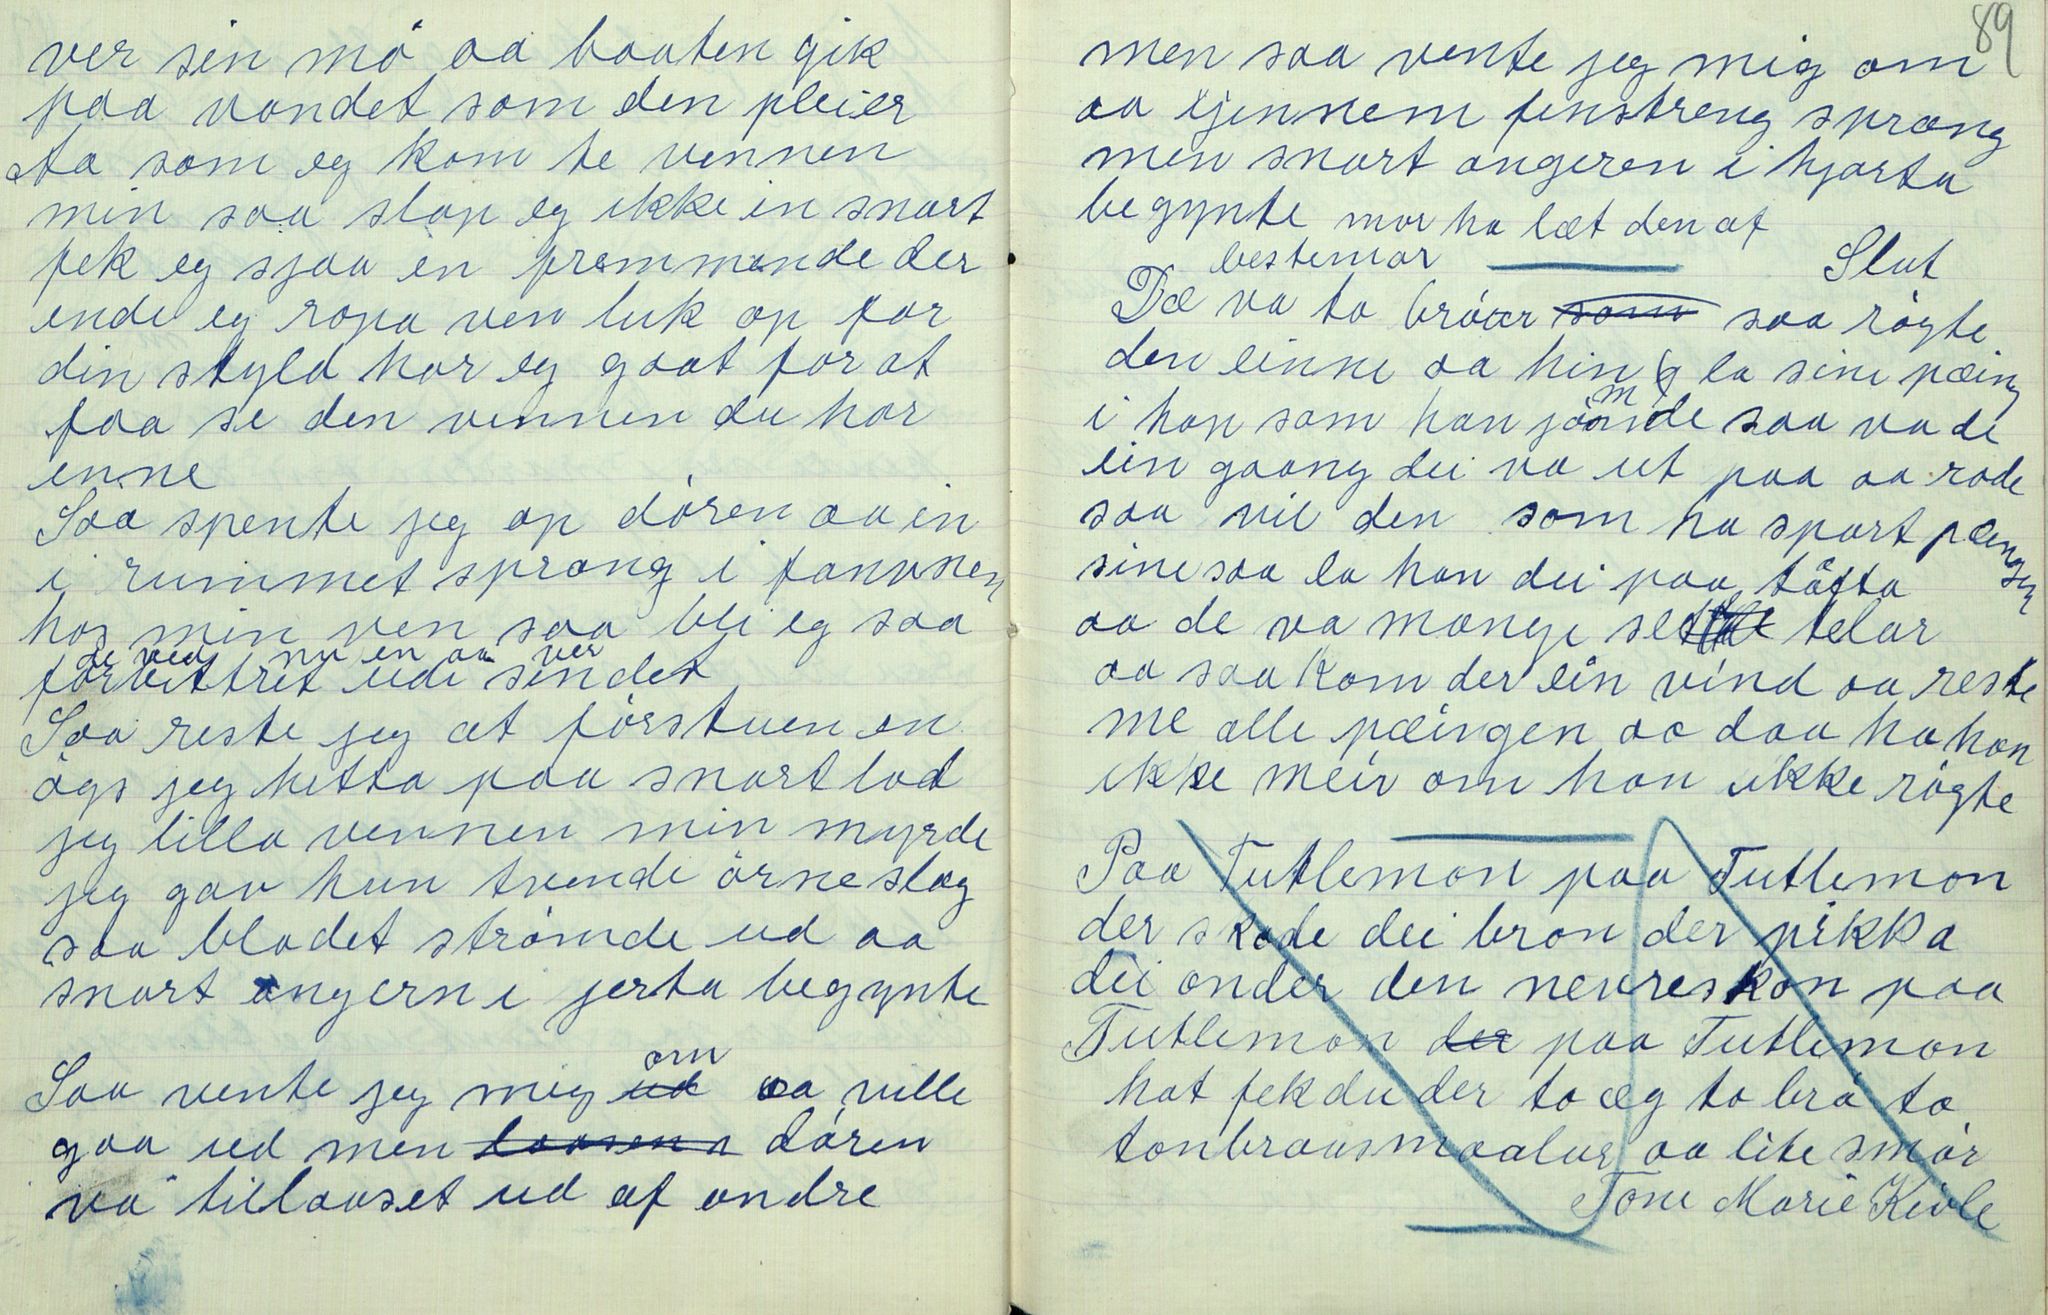 ver sin mö aa baaten gik
paa vandet som den pleier
Aa som eg kom te vennen
min saa slap eg ikke in snart
fek eg sjaa en fremmende der
ende eg ropa ven luk op for
din skyld har eg gaat for at
faa se den vennen du har
enne
Saa spente jeg op dören aa in
i rummet sprang i fanvnen
hos min ven saa bli eg saa
de ved nu en aa ver
forbittret udi sindet
Saa reste jeg at förstuen en
ögs jeg hitta paa snart lod
jeg lilla vennen min myrde
jeg gav hun trende örneslag
saa blodet strömde ud aa
snart angern i jerta begynte
om
Saa vente jeg mig ud aa ville
gaa ud men laasen a dören
va tillaaset ud af andre
89
men saa vente jeg mig om
aa ijennem fenstreng sprang
men snart angeren i hjarta
begynte mor ha læt den af
bestemor
Slut
Dæ va to bröar som saa rögte
den einne aa hin la sine pæing
m
i hop som han jömde saa va de
ein gaang dei va ut paa aa rode
saa vil den som ha spart pængen
sine saa la han dei paa töfta
aa de va mange setelar
aa saa kom der ein vind aa reste
me alle pæingen aa daa ha han
ikke meir om han ikke rögte
Paa Tutlemon paa Tutlemon
der skode dei bron der pikka
dei onder den nevreskon paa
Tutlemon der paa Tutlemon
hat fek du der to æg to brö to
tonbrausmoalar aa lite smör
Tone Marie Kivle